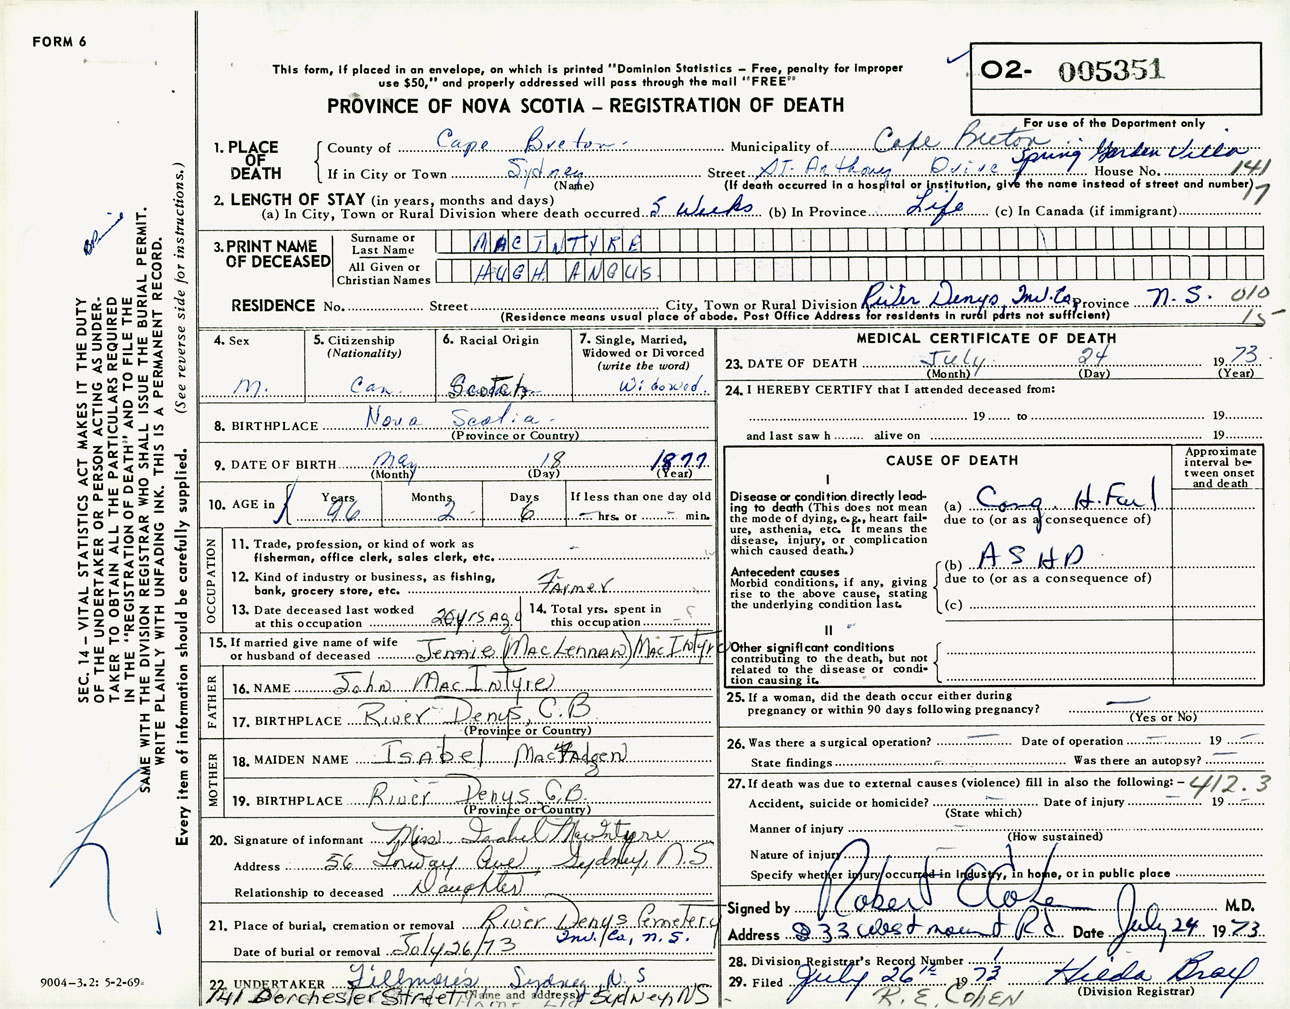 FORM 6
This form, if placed in an envelope, on which is printed "Dominion Statistics – Free, penalty for improper
use $50," and properly addressed will pass through the mail "FREE"
PROVINCE OF NOVA SCOTIA – REGISTRATION OF DEATH
O2- 005351
For use of the Department only
1. PLACE OF DEATH
County of Cape Breton Municipality of Cape Breton
Spring Garden Villa
If in City or Town Sydney Street St. Anthony Drive House No. 141
(Name) (If death occurred in a hospital or institution, give the name instead of street and number)
17
2. LENGTH OF STAY (in years, months and days)
(a) In City, Town or Rural Division where death occurred 5 weeks (b) In Province Life (c) In Canada (if immigrant)
3. PRINT NAME OF DECEASED
Surname or Last Name MACINTYRE
All Given or Christian Names HUGH ANGUS
RESIDENCE No. Street City, Town or Rural Division River Denys, Inv. Co. Province N.S. 010
(Residence means usual place of abode. Post Office Address for residents in rural parts not sufficient) 15
4. Sex M.
5. Citizenship (Nationality) Can.
6. Racial Origin Scotch
7. Single, Married, Widowed or Divorced (write the word) Widowed.
8. BIRTHPLACE Nova Scotia
(Province or Country)
9. DATE OF BIRTH May 18 1877
(Month) (Day) (Year)
10. AGE in Years 96 Months 2 Days 6 If less than one day old
hrs. or min.
OCCUPATION
11. Trade, profession, or kind of work as
fisherman, office clerk, sales clerk, etc. -
12. Kind of industry or business, as fishing,
bank, grocery store, etc. Farmer
13. Date deceased last worked
at this occupation 20 yrs Ago
14. Total yrs. spent in
this occupation
15. If married give name of wife
or husband of deceased Jennie (MacLennan) MacIntyre
FATHER
16. NAME John MacIntyre
17. BIRTHPLACE River Denys, C.B
(Province or Country)
MOTHER
18. MAIDEN NAME Isabel MacFadgen
19. BIRTHPLACE River Denys C.B.
(Province or Country)
20. Signature of informant Miss Isabel MacIntyre
Address 56 Ave Sydney, N.S
Relationship to deceased Daughter
21. Place of burial, cremation or removal River Denys Cemetery
Inv. Co, N.S.
Date of burial or removal July 26/73
22. UNDERTAKER Fillmore's Sydney N.S
(Name and address)
141 Dorchester Street Sydney, NS
MEDICAL CERTIFICATE OF DEATH
23. DATE OF DEATH July 24 1973
(Month) (Day) (Year)
24. I HEREBY CERTIFY that I attended deceased from:
19 to 19
and last saw h alive on 19
CAUSE OF DEATH
Approximate interval between onset and death
I
Disease or condition directly leading to death (This does not
mean the mode of dying, e.g., heart failure, asthenia, etc. It means the
disease, injury, or complication
which caused death.)
(a) Cong. H. Fail
due to (or as a consequence of)
Antecedent causes
Morbid conditions, if any, giving
rise to the above cause, stating
the underlying condition last.
(b) ASHD
due to (or as a consequence of)
(c)
II
Other significant conditions
contributing to the death, but not
related to the disease or condition causing it.
25. If a woman, did the death occur either during
pregnancy or within 90 days following pregnancy? —
(Yes or No)
26. Was there a surgical operation? — Date of operation — 19 —
State findings Was there an autopsy? —
27. If death was due to external causes (violence) fill in also the following: - 412.3
Accident, suicide or homicide? Date of injury 19
(State which)
Manner of injury
(How sustained)
Nature of injury
Specify whether injury occurred in industry, in home, or in public place
Signed by Robert E Cohen M.D.
Address 33 Westmount Rd Date July 24 1973
28. Division Registrar's Record Number
29. Filed July 26th 1973 Hilda Bray
(Division Registrar)
R.E. COHEN
SEC. 14 – VITAL STATISTICS ACT MAKES IT THE DUTY
OF THE UNDERTAKER OR PERSON ACTING AS UNDER-
TAKER TO OBTAIN ALL THE PARTICULARS REQUIRED
IN THE "REGISTRATION OF DEATH" AND TO FILE THE
SAME WITH THE DIVISION REGISTRAR WHO SHALL ISSUE THE BURIAL PERMIT.
WRITE PLAINLY WITH UNFADING INK. THIS IS A PERMANENT RECORD.
Every item of information should be carefully supplied. (See reverse side for instructions.)
9004-3.2: 5-2-69